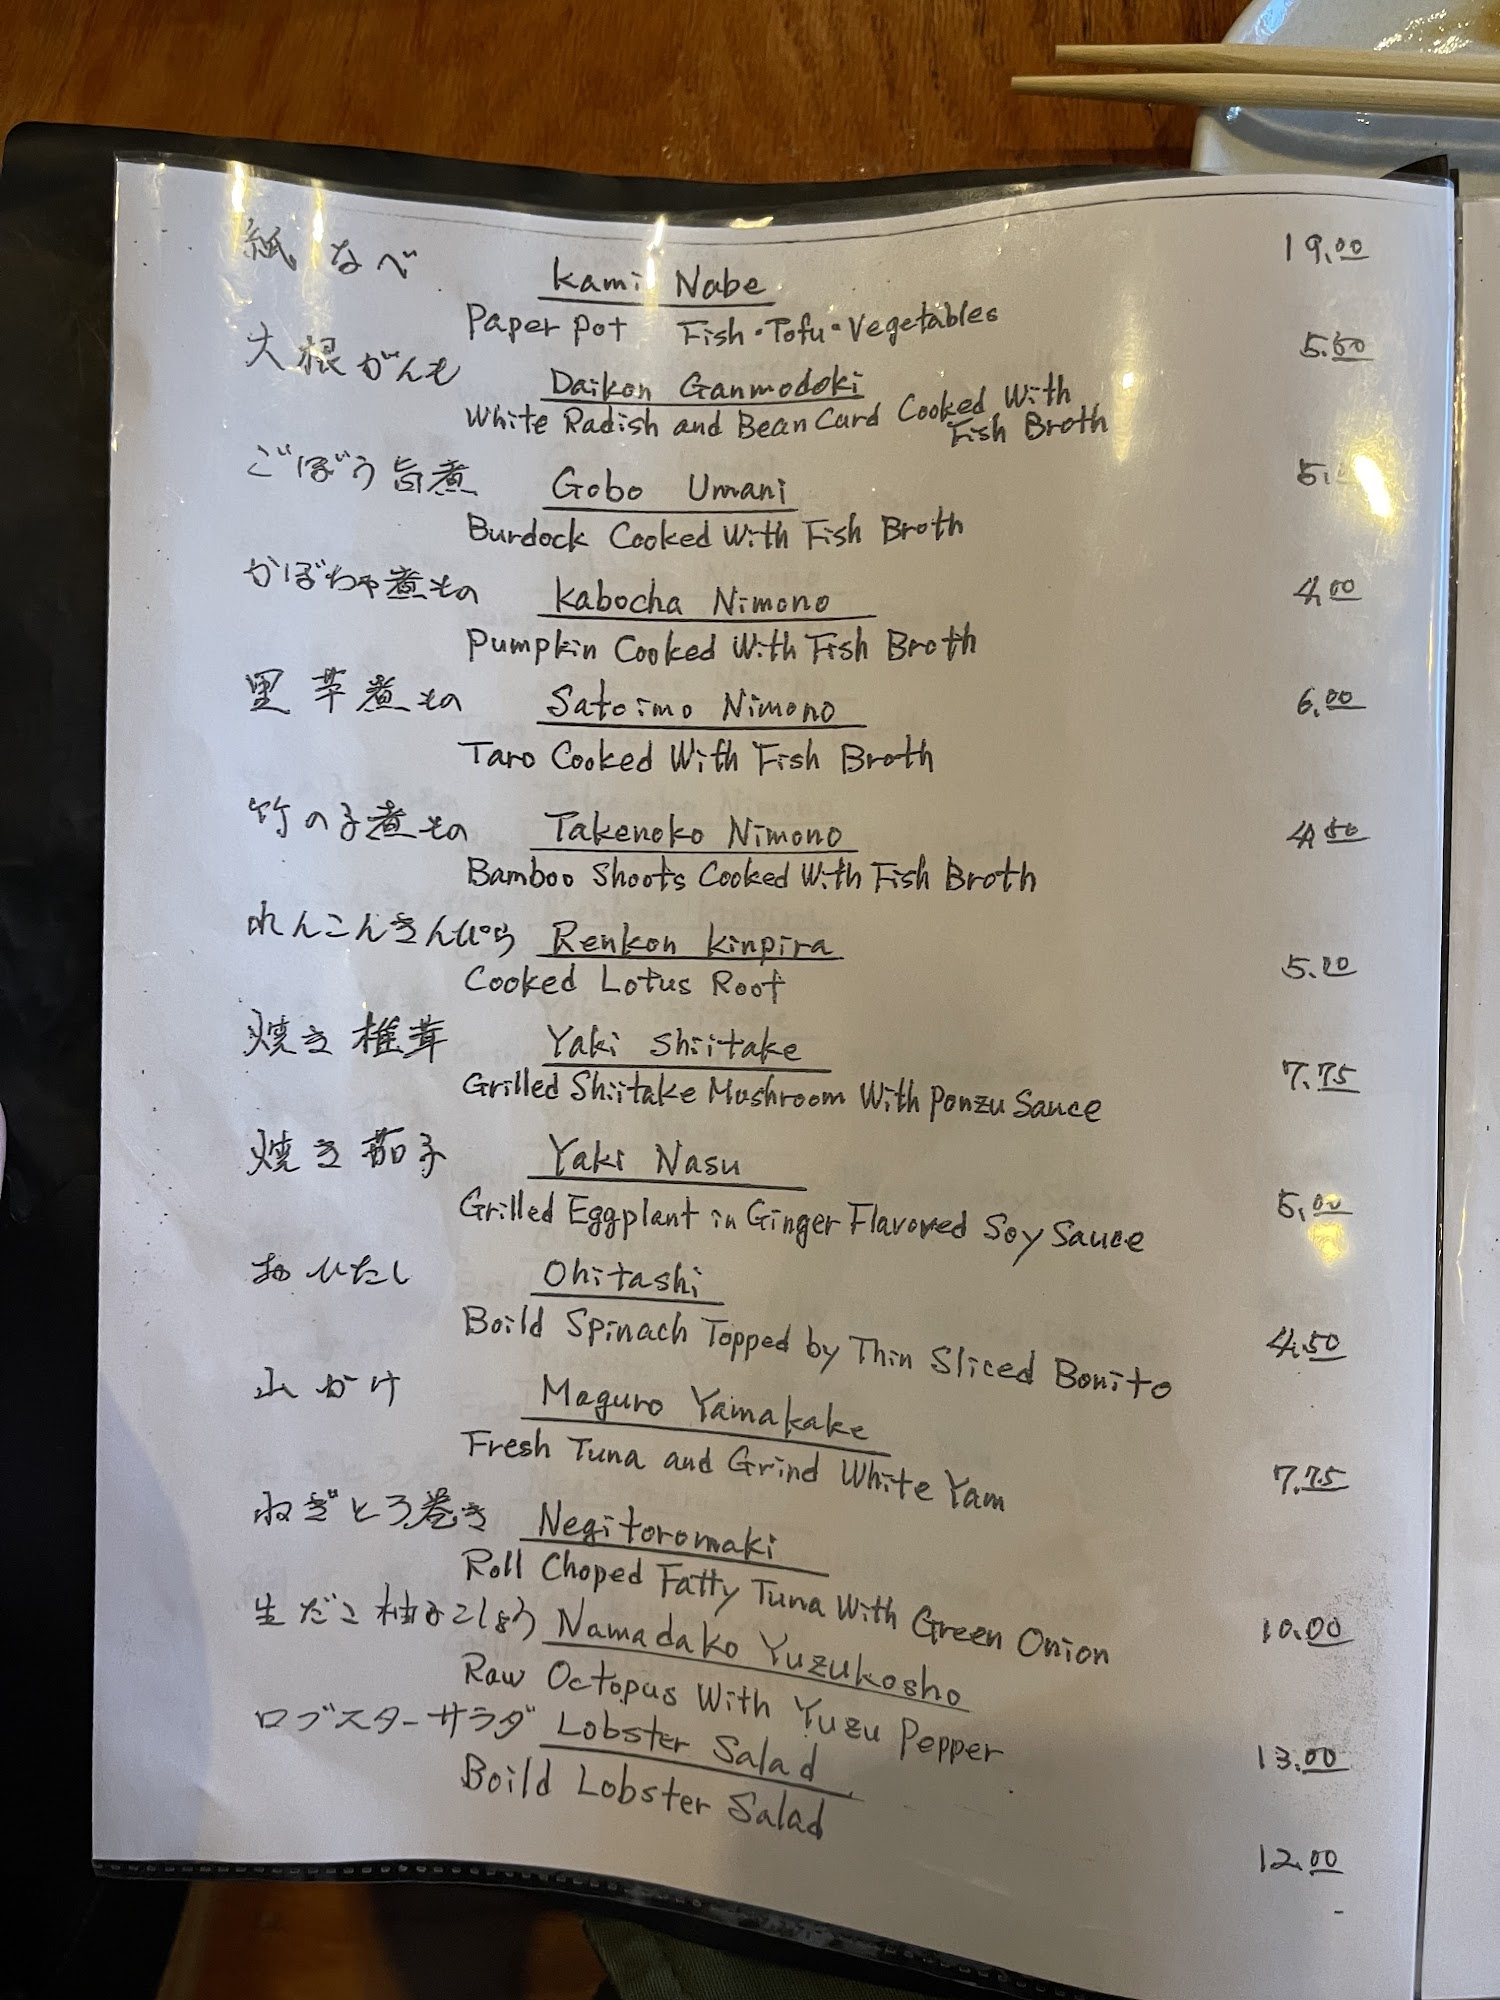 紙なべ Kami Nabe 19.00
Paper Pot Fish・Tofu・Vegetables
大根がんも Daikon Ganmodoki 5.50
White Radish and Bean Curd Cooked With
Fish Broth
ごぼう旨煮 Gobo Umani
Burdock Cooked With Fish Broth
かぼちゃ煮もの Kabocha Nimono 4.00
Pumpkin Cooked With Fish Broth
里芋煮もの Satoimo Nimono 6.00
Taro Cooked With Fish Broth
竹の子煮もの Takenoko Nimono 4.50
Bamboo Shoots Cooked With Fish Broth
れんこんきんぴら Renkon Kinpira 5.00
Cooked Lotus Root
焼き椎茸 Yaki Shiitake 7.75
Grilled Shiitake Mushroom With Ponzu Sauce
焼き茄子 Yaki Nasu 5.00
Grilled Eggplant in Ginger Flavored Soy Sauce
おひたし Ohitashi 4.50
Boild Spinach Topped by Thin Sliced Bonito
山かけ Maguro Yamakake 7.75
Fresh Tuna and Grind White Yam
ねぎとろ巻き Negitoromaki 10.00
Roll Choped Fatty Tuna With Green Onion
生だこ柚子こしょう Namadako Yuzukosho 13.00
Raw Octopus With Yuzu Pepper
ロブスターサラダ Lobster Salad 12.00
Boild Lobster Salad